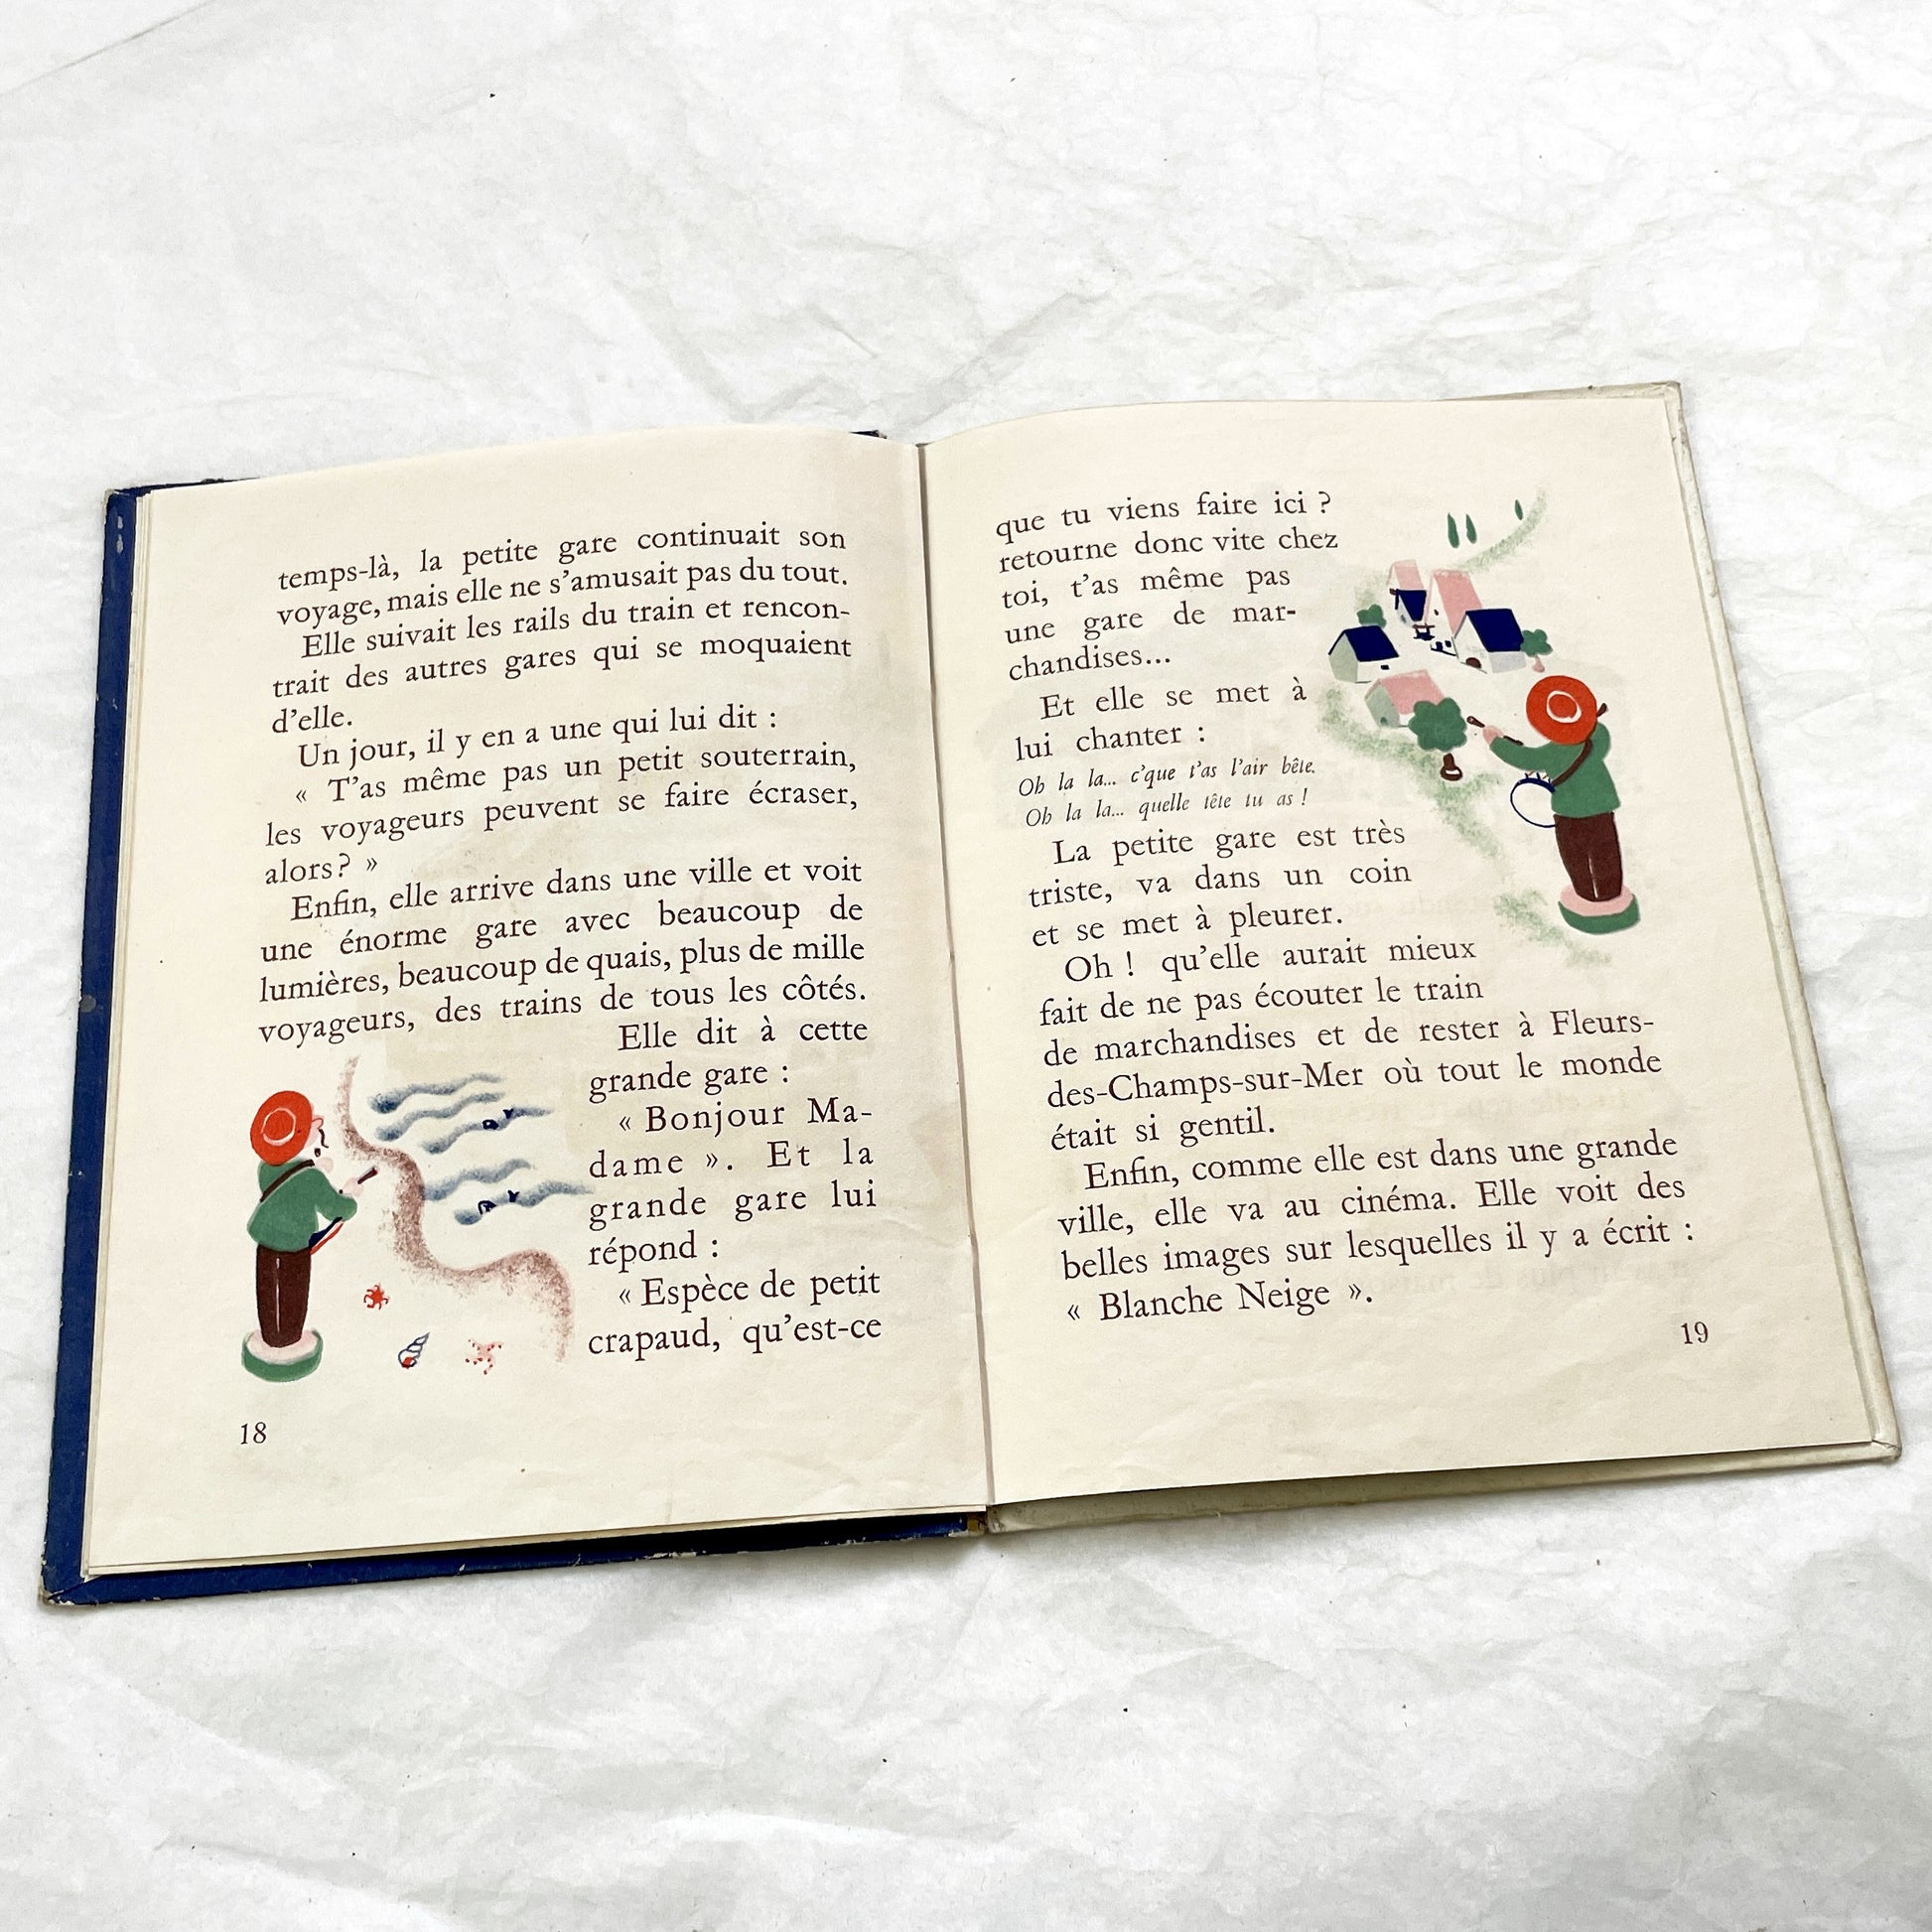 temps-là, la petite gare continuait son
voyage, mais elle ne s'amusait pas du tout.
Elle suivait les rails du train et rencon-
trait des autres gares qui se moquaient
d'elle.
Un jour, il y en a une qui lui dit :
« T'as même pas un petit souterrain,
les voyageurs peuvent se faire écraser,
alors? »
Enfin, elle arrive dans une ville et voit
une énorme gare avec beaucoup de
lumières, beaucoup de quais, plus de mille
voyageurs, des trains de tous les côtés.
Elle dit à cette
grande gare :
« Bonjour Ma-
dame ». Et la
grande gare lui
répond :
« Espèce de petit
crapaud, qu'est-ce
18
que tu viens faire ici ?
retourne donc vite chez
toi, t'as même pas
une gare de mar-
chandises...
Et elle se met à
lui chanter :
Oh la la... c'que t'as l'air bête.
Oh la la... quelle tête tu as !
La petite gare est très
triste, va dans un coin
et se met à pleurer.
Oh ! qu'elle aurait mieux
fait de ne pas écouter le train
de marchandises et de rester à Fleurs-
des-Champs-sur-Mer où tout le monde
était si gentil.
Enfin, comme elle est dans une grande
ville, elle va au cinéma. Elle voit des
belles images sur lesquelles il y a écrit :
« Blanche Neige ».
19